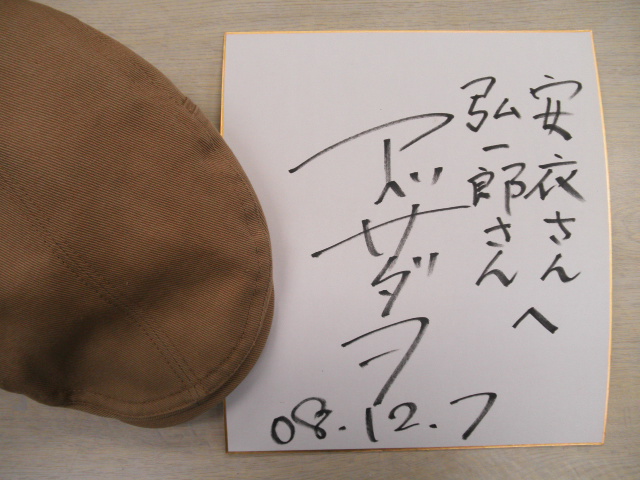 安衣さん
弘一郎さん
へ
アベサダヲ
08.12.7